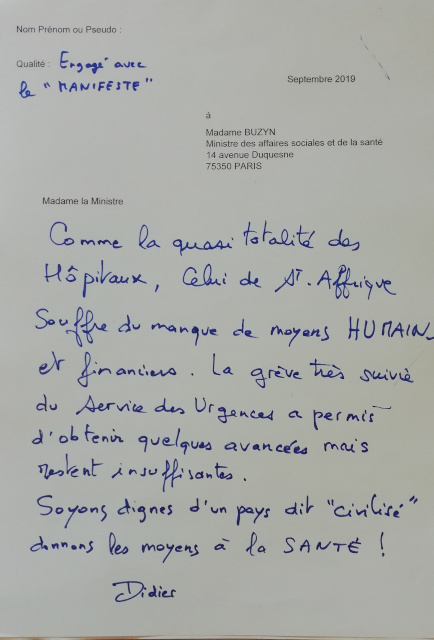 Nom Prénom ou Pseudo :
Qualité : Engagé avec
le "MANIFESTE"
Septembre 2019
à
Madame BUZYN
Ministre des affaires sociales et de la santé
14 avenue Duquesne
75350 PARIS
Madame la Ministre
Comme la quasi totalité des
Hôpitaux, Celui de St. Affrique
Souffre du manque de moyens HUMAIN
et financiers. La grève très suivie
du Service des Urgences a permis
d'obtenir quelques avancées mais
restent insuffisantes.
Soyons dignes d'un pays dit "civilisé"
donnons les moyens à la SANTÉ !
Didier